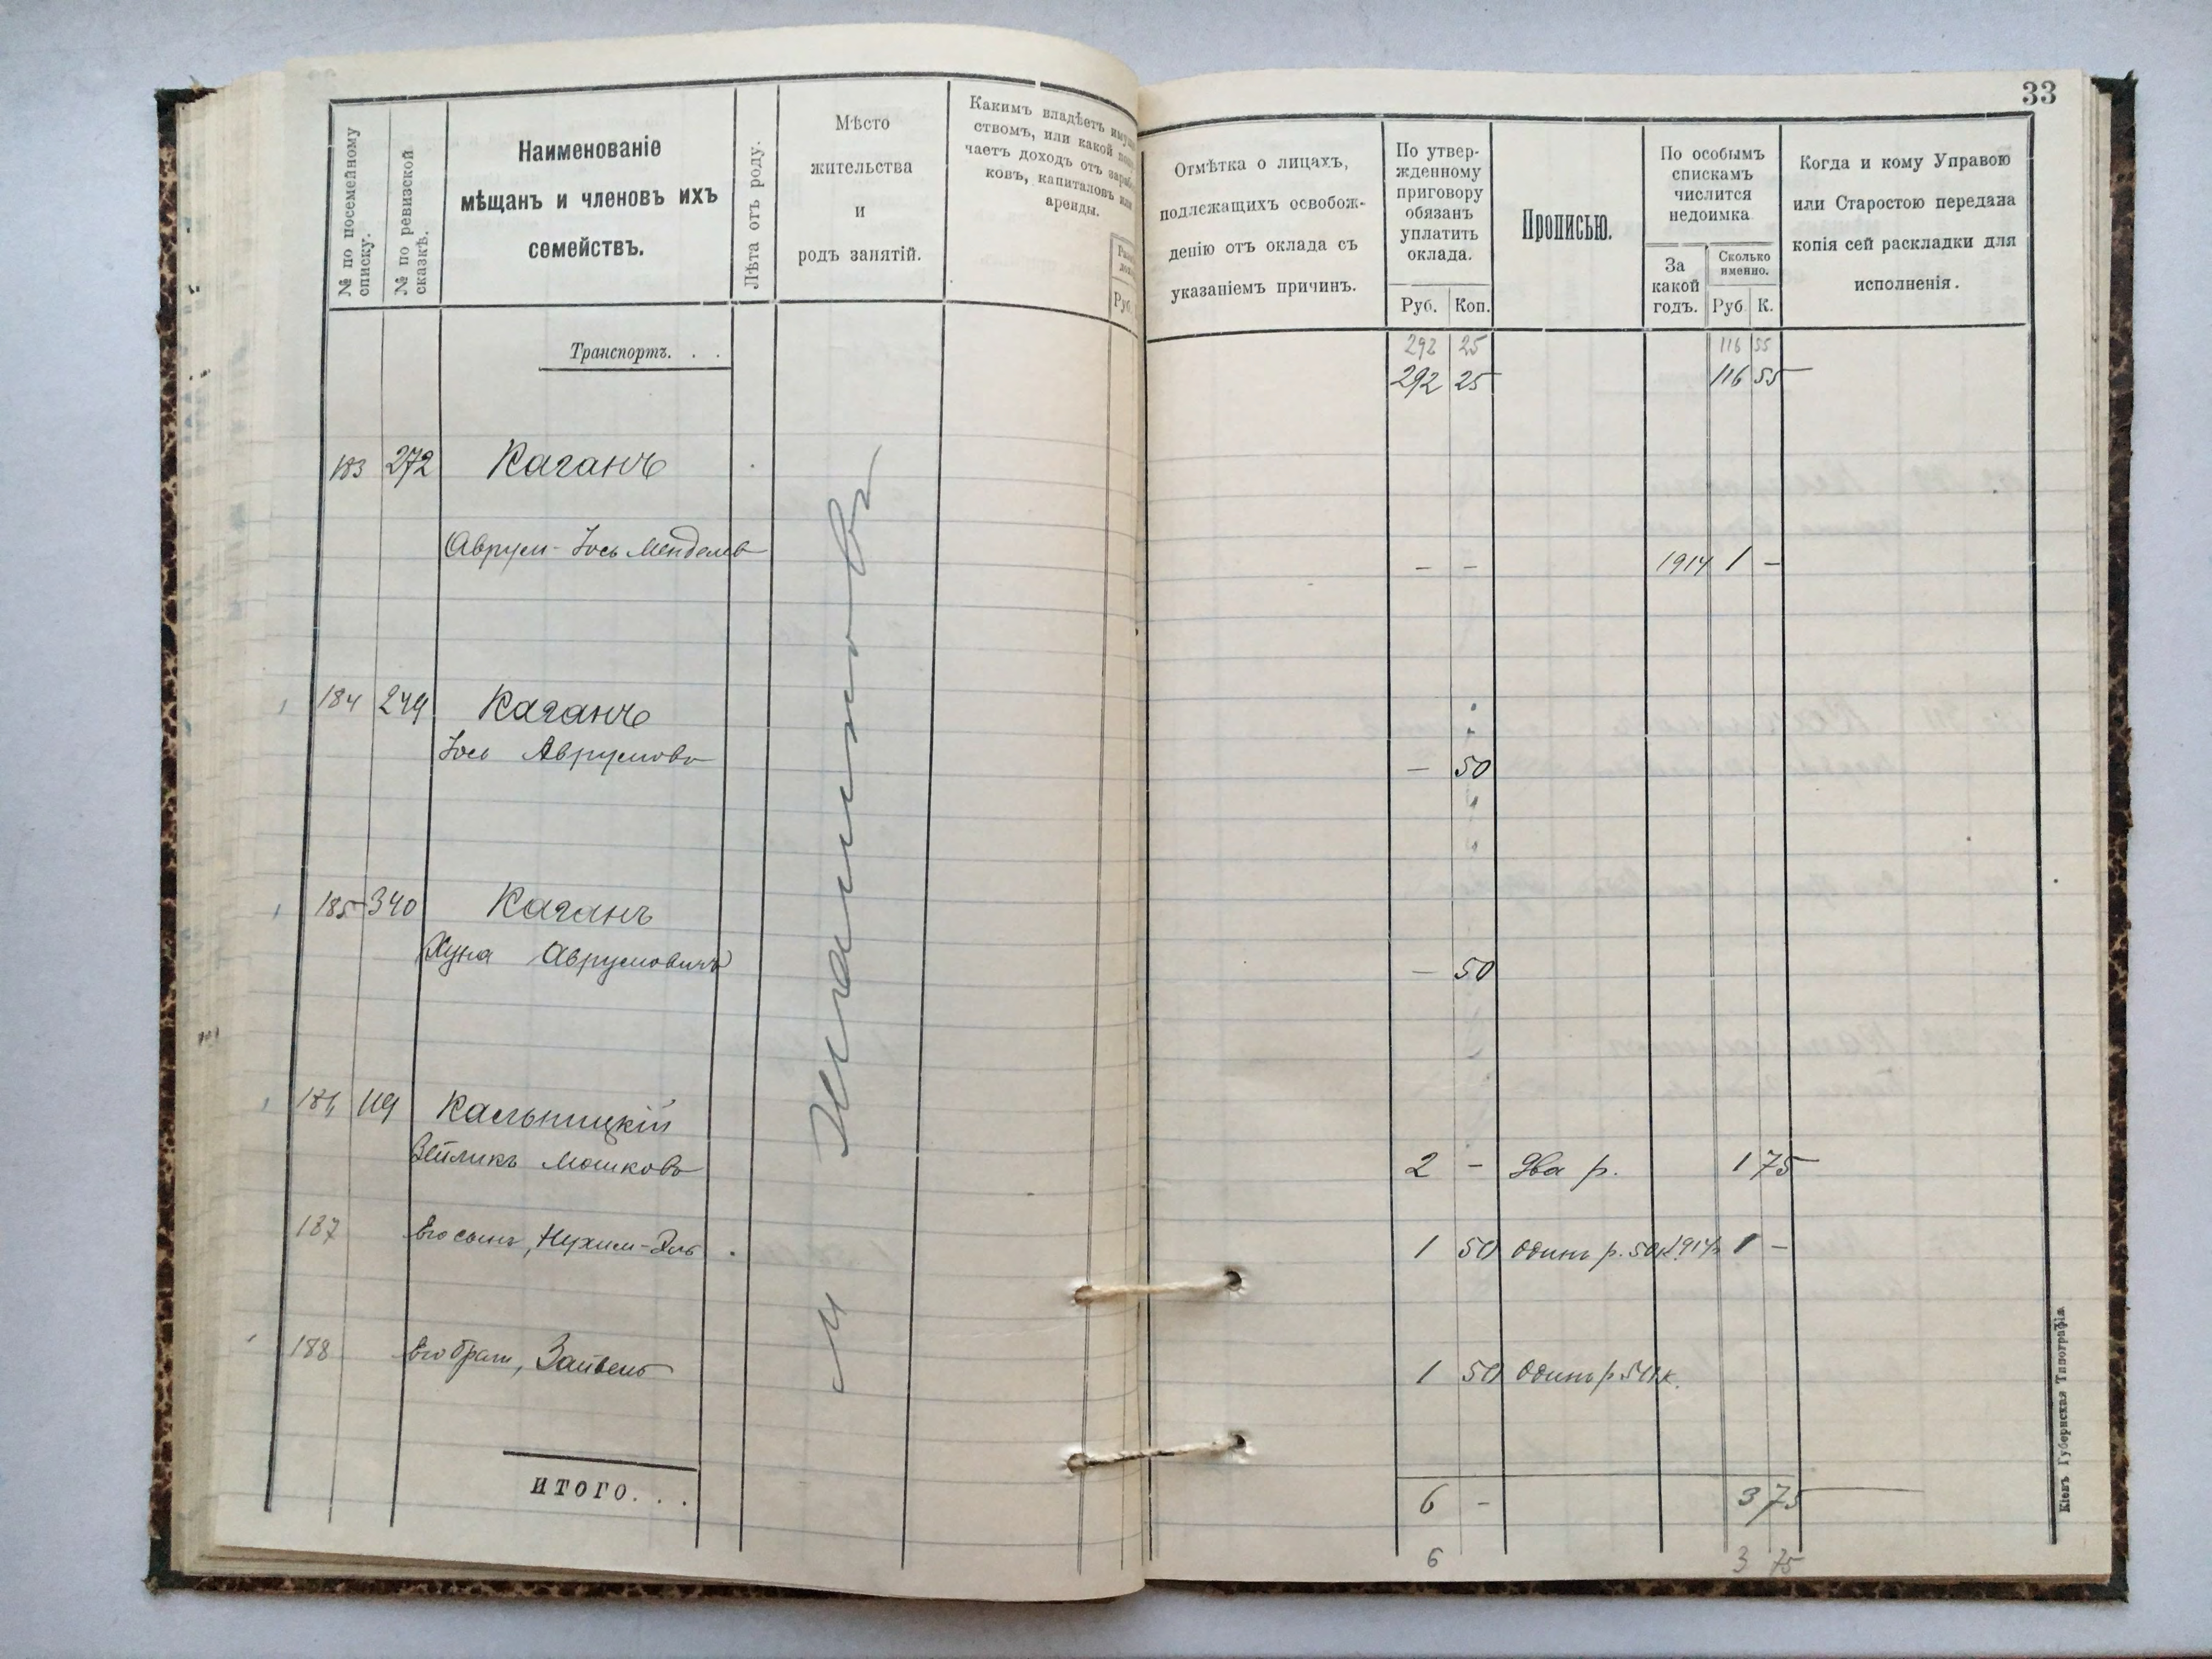 33
№ по посемейному списку.
№ по ревизской сказкѣ.
Наименованіе
мѣщанъ и членовъ ихъ
семействъ.
Лѣта отъ роду.
Мѣсто
жительства
и
родъ занятій.
Какимъ владѣетъ
ствомъ, или какой
чаетъ доходъ отъ
ковъ, капиталовъ или
аренды.
Руб.
Отмѣтка о лицахъ,
подлежащихъ освобож-
денію отъ оклада съ
указаніемъ причинъ.
По утвер-
жденному
приговору
обязанъ
уплатить
оклада.
Руб. Коп.
Прописью.
По особымъ
спискамъ
числится
недоимка
За
какой
годъ.
Сколько
именно.
Руб К.
Когда и кому Управою
или Старостою передана
копія сей раскладки для
исполненія.
Транспортъ. . .
292 25 116 55
292 25 116 55
183 272 Каганъ
Аврум-Іось Менделев
- - 1914 1 -
184 249 Каганъ
Іось Аврумовъ
- 50
185 340 Каганъ
Хуна Аврумовичъ
- 50
186 119 Кальницкій
Вейликъ Мошковъ
2 - Два р. 1 75
187 Его сынъ, Нухим-Эль
1 50 Одинъ р. 50 к. 1914 1 -
188 Его братъ, Зайвель
1 50 Одинъ р. 50 к.
М
ИТОГО. . .
6 - 3 75
6 3 75
Кіевъ Губернская Типографія